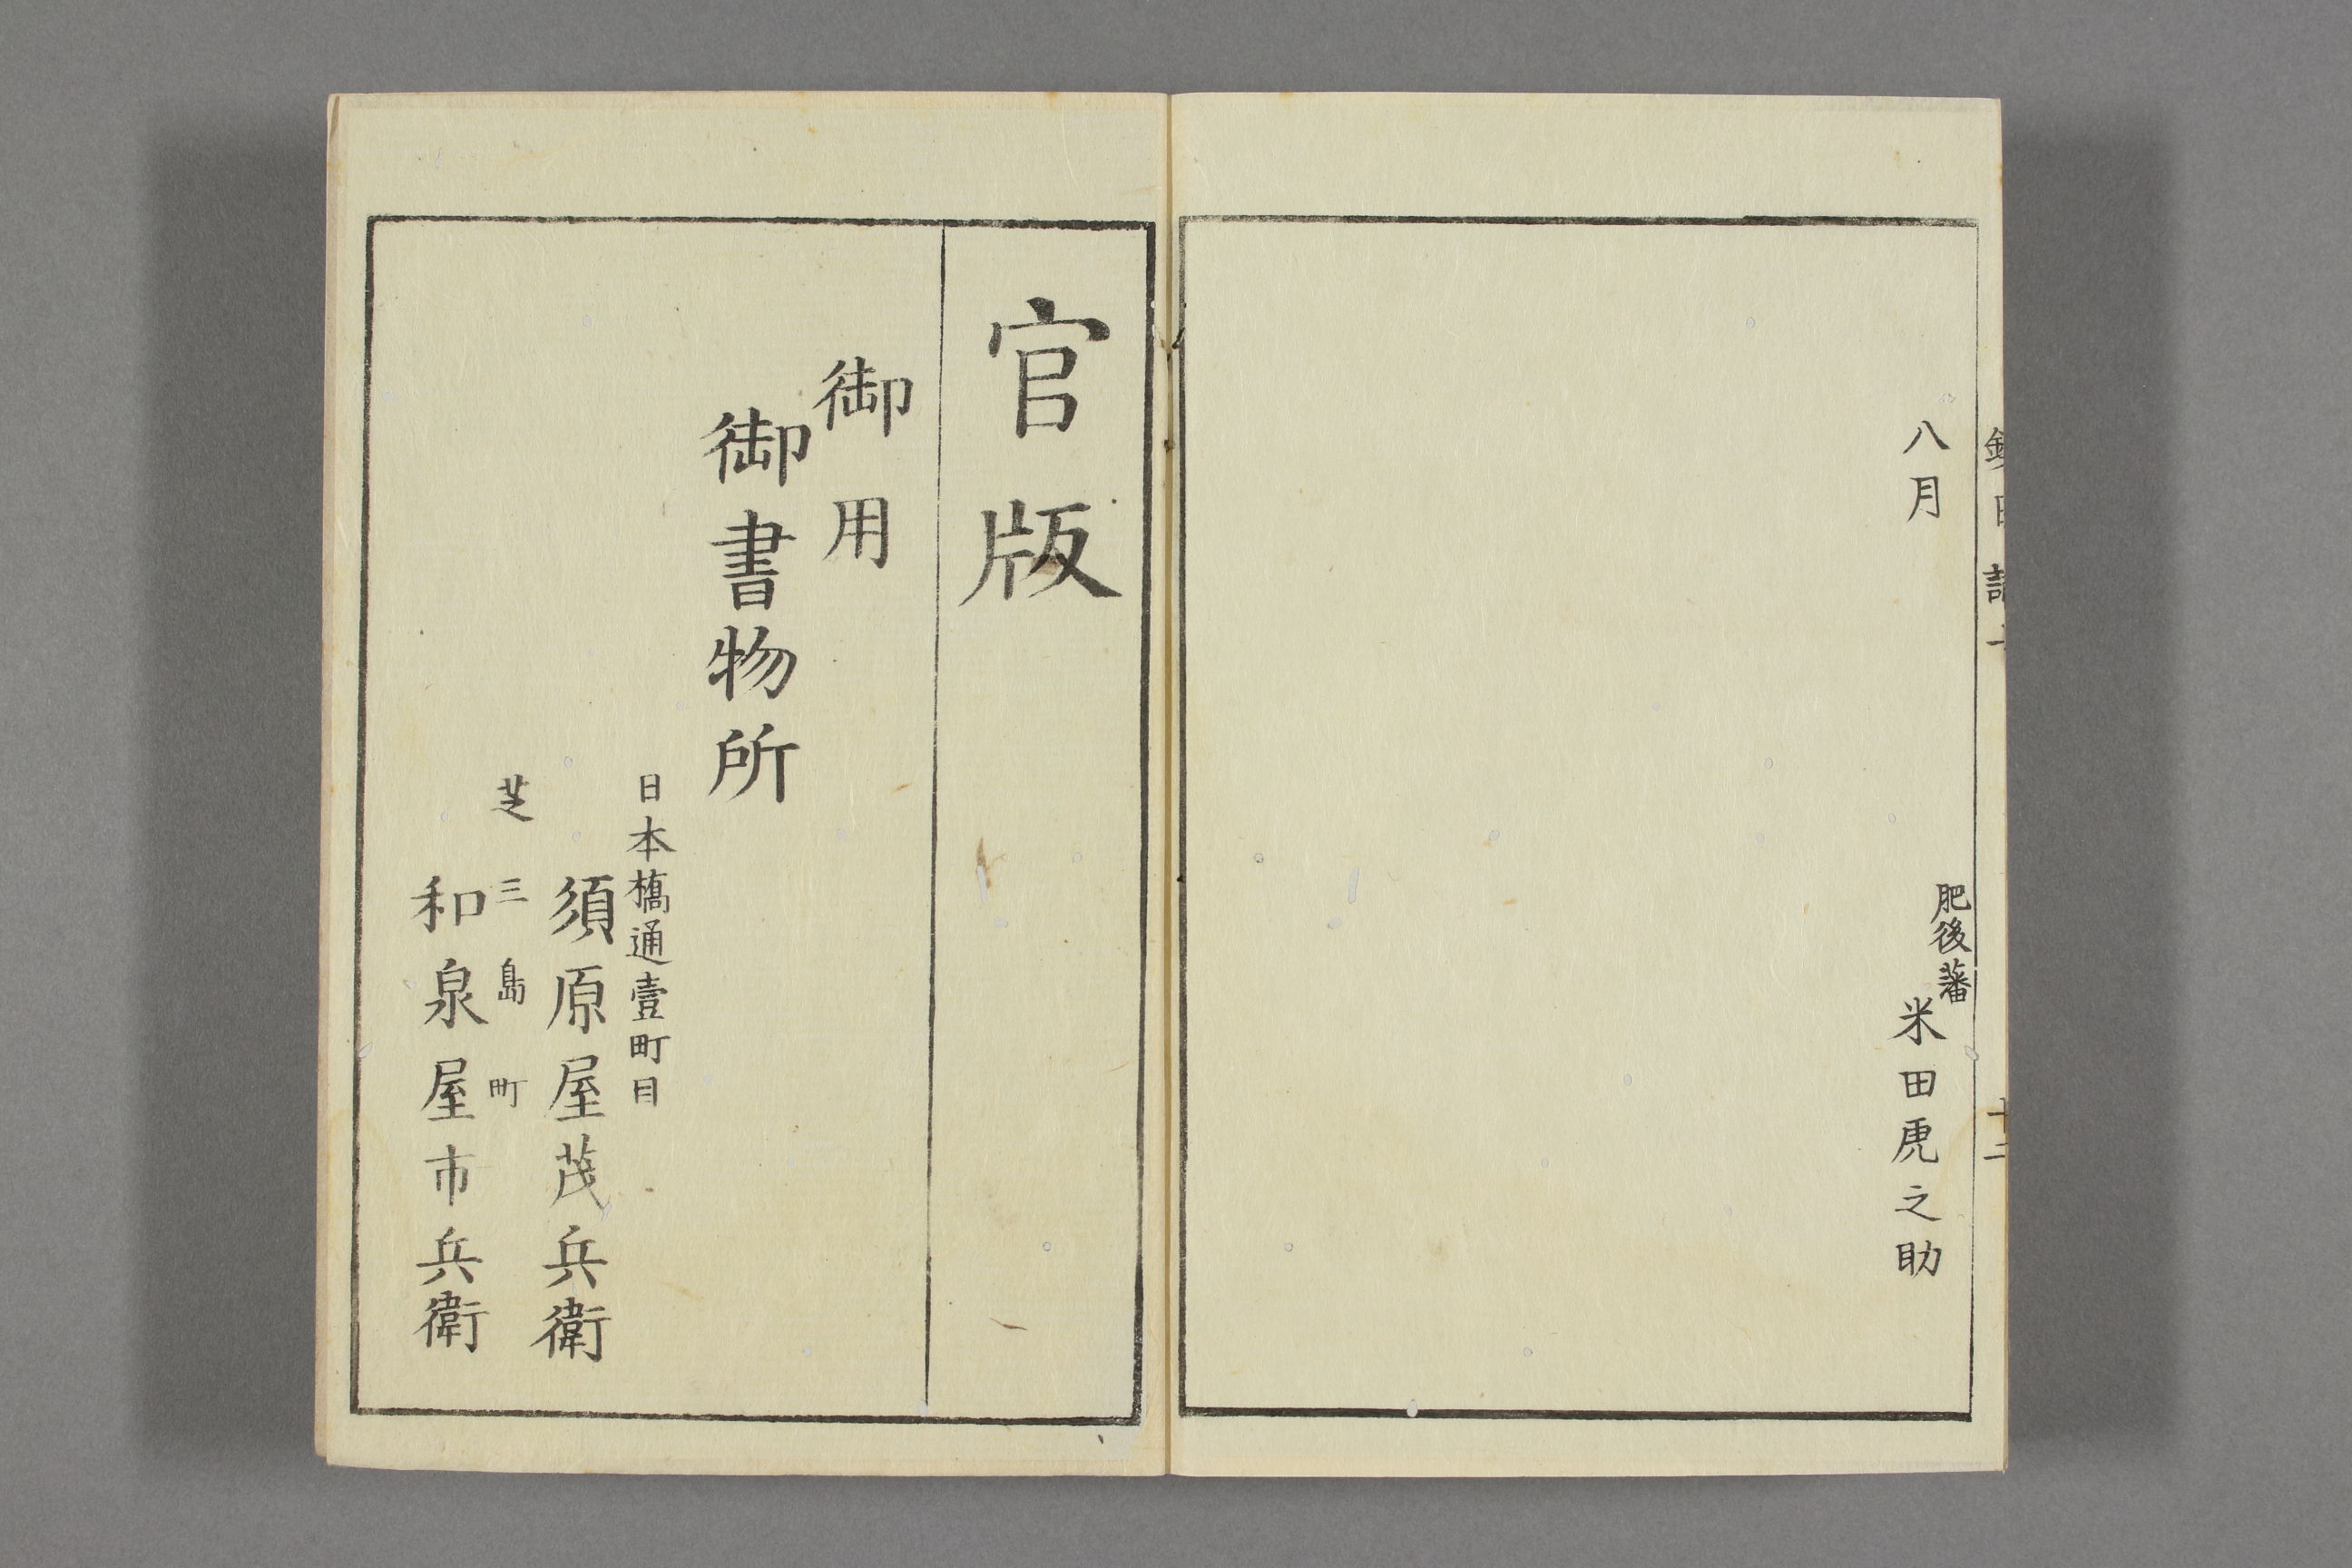 八月
肥後藩
米田虎之助
官版
御用
御書物所
日本橋通壹町目
須原屋茂兵衛
芝三島町
和泉屋市兵衛